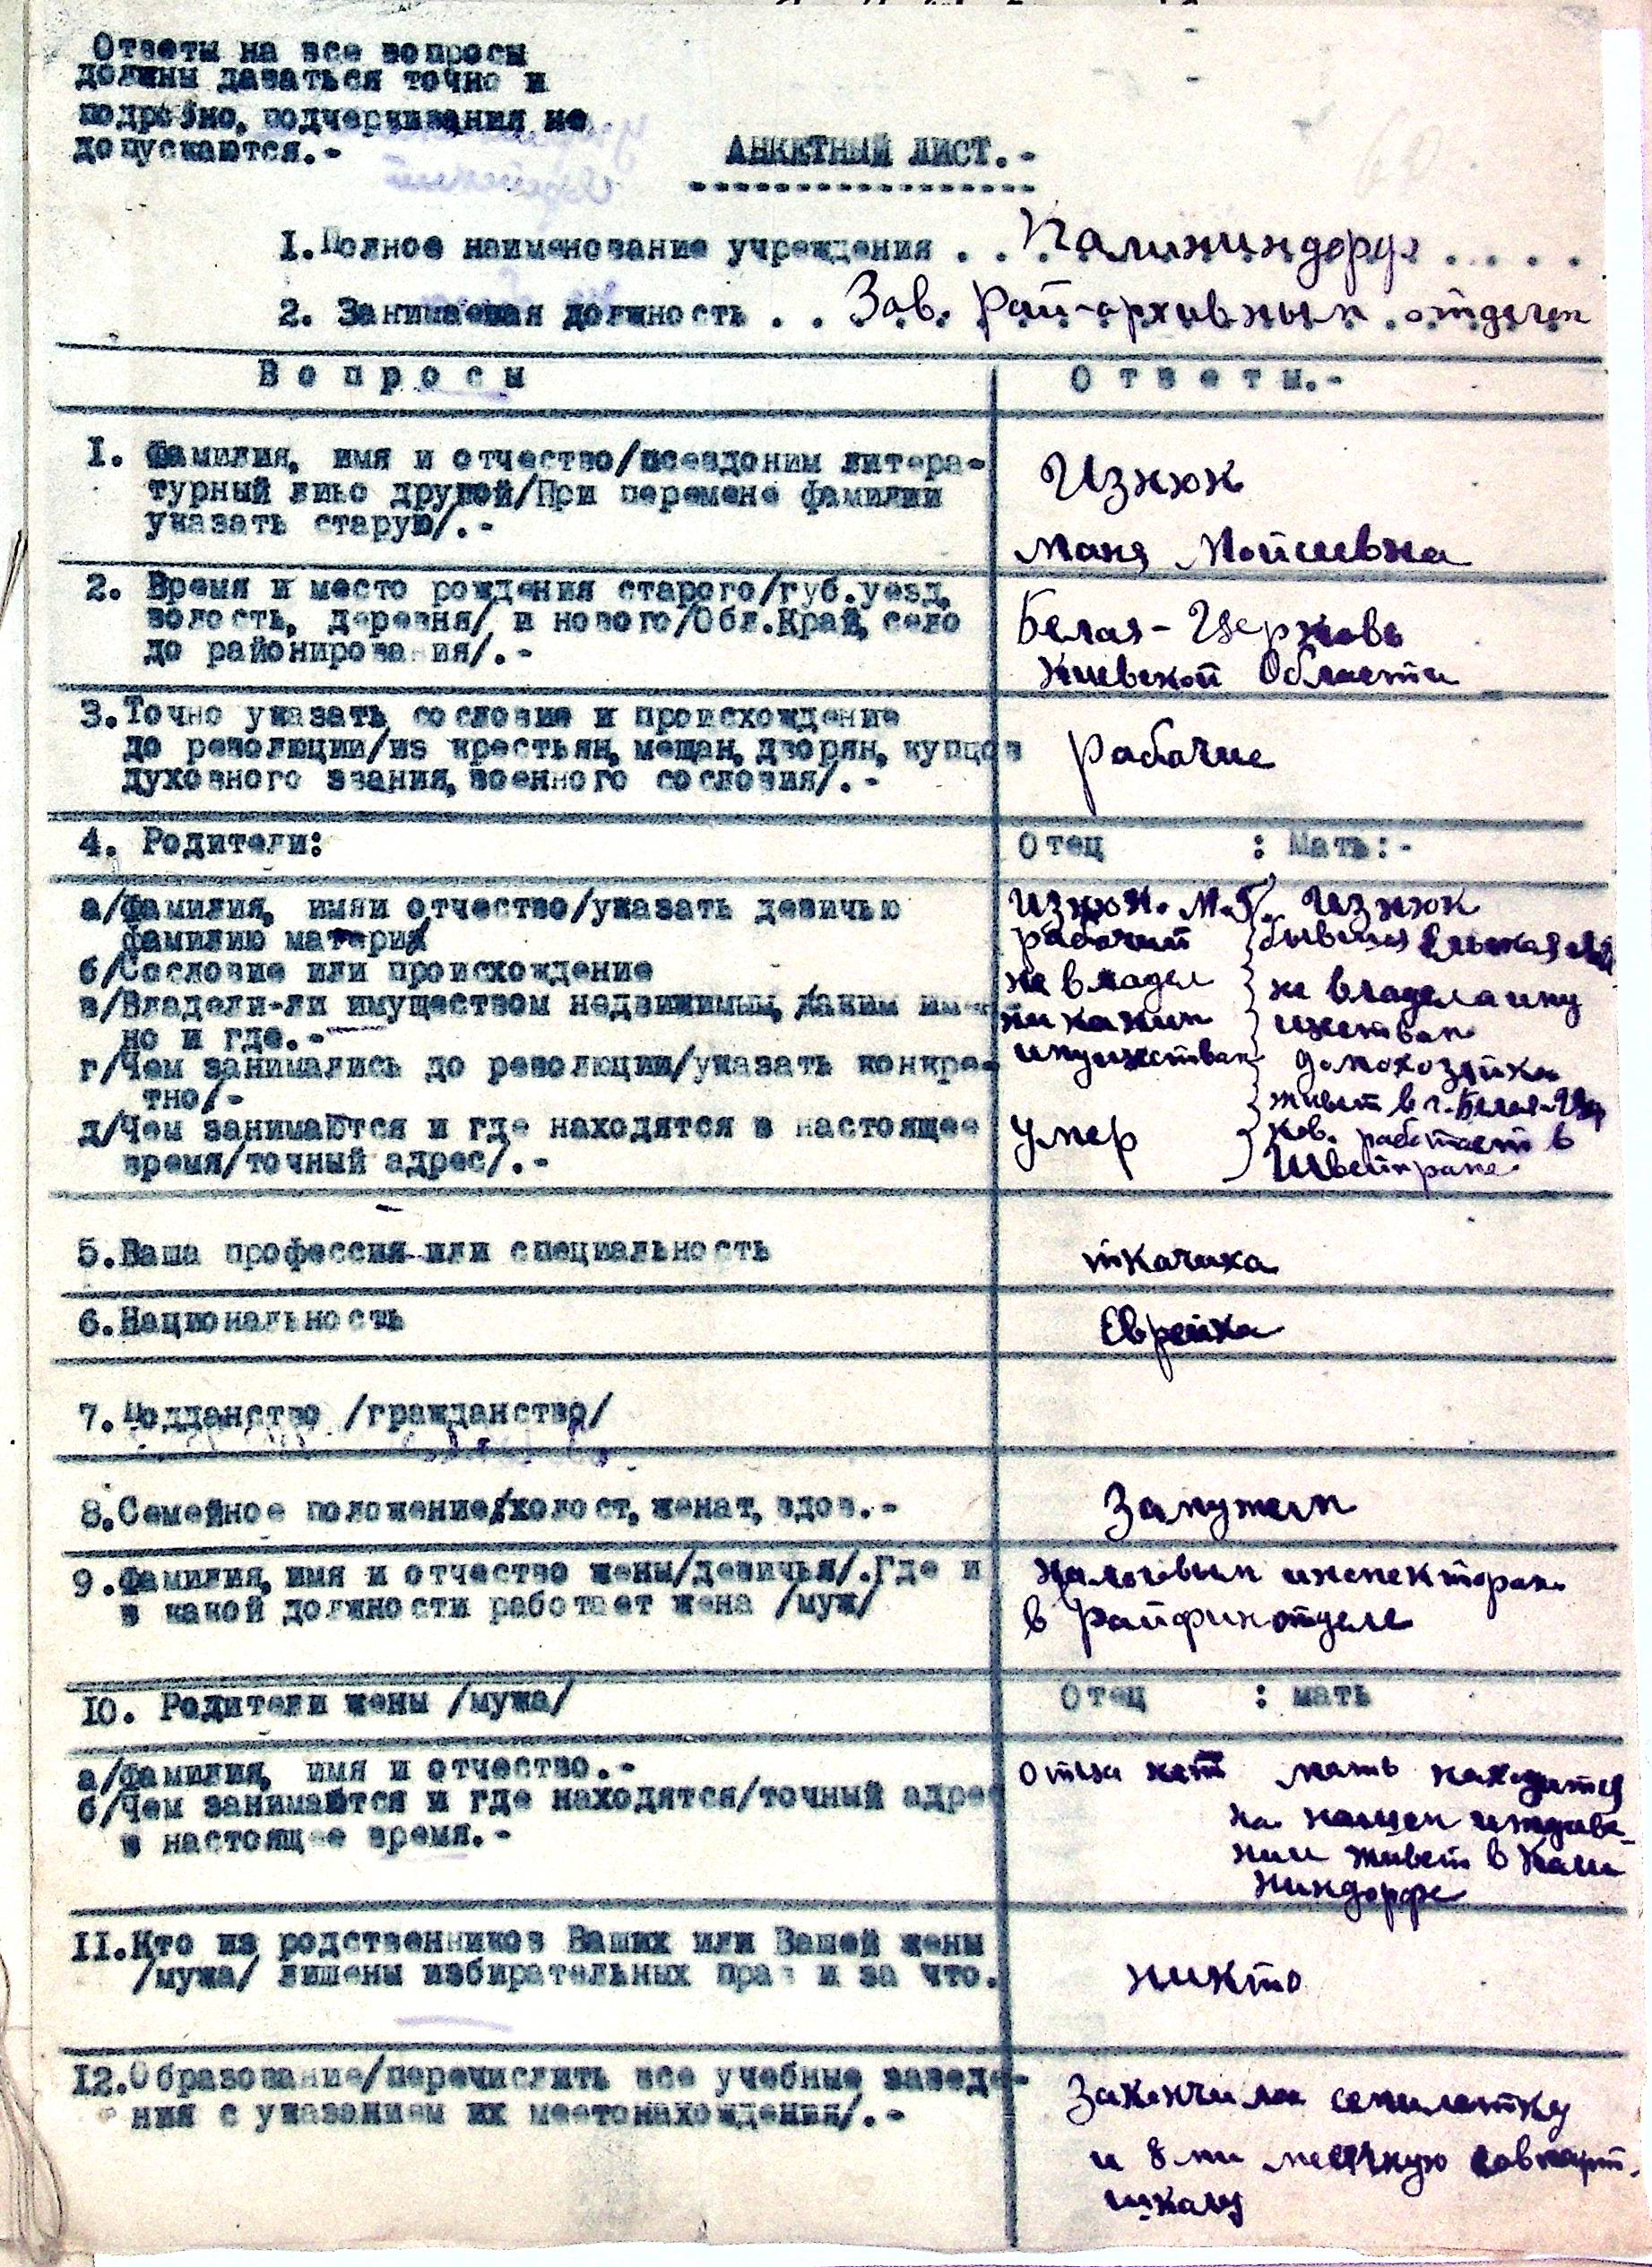 Ответы на все вопросы
должны даваться точно и
подробно, подчеркивания не
допускаются.-
АНКЕТНЫЙ ЛИСТ.-
1. Полное наименование учреждения . . Калининдорф . . . . .
2. Занимаемая должность . . Зав. Рай-архивным отделом
Вопросы
Ответы.-
1. Фамилия, имя и отчество/псевдоним литера-
турный либо другой/При перемене фамилии
указать старую/.-
Изнюк
Маня Мойсеевна
2. Время и место рождения старого/губ.уезд,
волость, деревня/ и нового/Обл.Край, село
до районирования/.-
Белая-Церковь
Киевской Области
3. Точно указать сословие и происхождение
до революции/из крестьян, мещан, дворян, купцов
духовного звания, военного сословия/.-
Рабочие
4. Родители:
Отец : Мать:-
а/Фамилия, имяи отчество/указать девичью
фамилию матери
б/Сословие или происхождение
в/Владели-ли имуществом недвижимым, каким имен
но и где.-
г/Чем занимались до революции/указать конкре-
тно/-
д/Чем занимаются и где находятся в настоящее
время/точный адрес/.-
Изнюк. М.Г.
рабочий
не владел
ни каким
имуществом
умер
Изнюк
бывшая
не владела иму
ществом
домохозяйка
живет в г. Белая-Цер
ков. работает в
Швейпроме
5. Ваша профессия или специальность
ткачиха
6. Национальность
Еврейка
7. Подданство /гражданство/
8. Семейное положение/холост, женат, вдов.-
Замужем
9. Фамилия, имя и отчество жены/девичья/.Где и
в какой должности работает жена /муж/
Налоговым инспектором
в Райфинотделе
10. Родители жены /мужа/
Отец : мать
а/Фамилия, имя и отчество.-
б/Чем занимаются и где находятся/точный адрес
в настоящее время.-
Отца нет мать находится
на нашем иждиве-
нии живет в Кали
ниндорфе
11. Кто из родственников Ваших или Вашей жены
/мужа/ лишены избирательных прав и за что.
никто
12. Образование/перечислить все учебные заведе-
ния с указанием их местонахождения/.-
Закончила семилетку
и 8 ми месячную совпарт.
школу